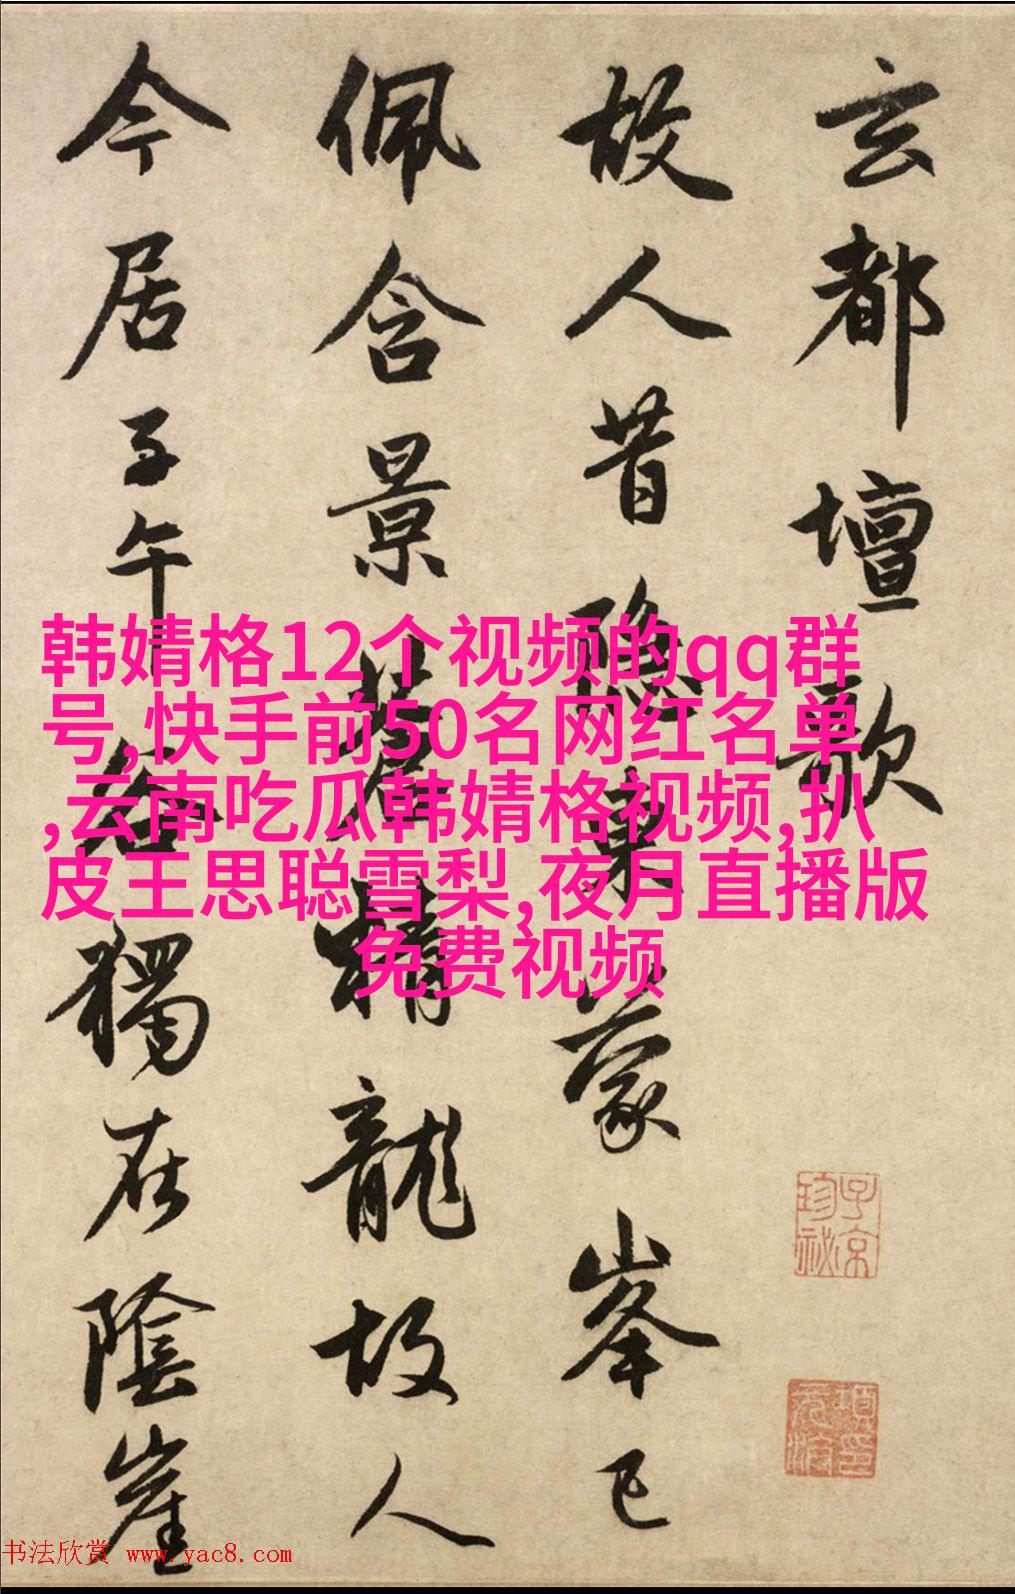 玄都壇歌
故人昔隱東蒙峯已
佩含景蒼精龍故人
今居子午谷獨在陰崖
韩婧格12个视频的qq群
号,快手前50名网红名单
,云南吃瓜韩婧格视频,扒
皮王思聪雪梨,夜月直播版
免费视频
子京
珍祕
书法欣赏 www.yac8.com